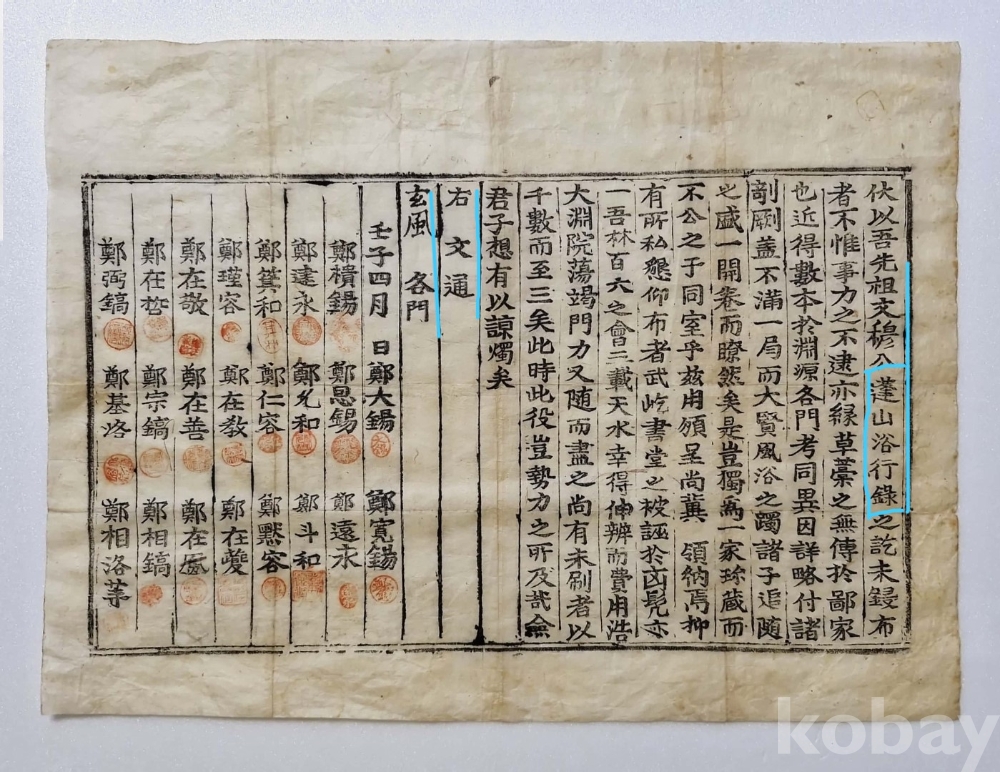 伏以吾先祖文穆公蓬山浴行錄之訖未鋟布
者不惟事力之不逮亦緣草藁之無傳於鄙家
也近得數本於淵源各門考同異因詳略付諸
剞劂盖不滿一局而大賢風浴之躅諸子追隨
之盛一開卷而瞭然矣是豈獨爲一家珎藏而
不公之于同室乎玆用頒呈尚冀 領納焉抑
有所私懇仰布者武屹書堂之被誣於凶髡亦
一吾林百六之會二載天水幸得伸辨而費用浩
大淵院蕩竭門力又隨而盡之尚有未刷者以
千數而至三矣此時此役豈勢力之所及哉僉
君子想有以諒燭矣
右 文通
玄風 各門
壬子四月 日 鄭大錫 鄭寬錫
鄭樻錫 鄭思錫 鄭遠永
鄭建永 鄭允和 鄭斗和
鄭箕和 鄭仁容 鄭默容
鄭瑾容 鄭在教 鄭在夔
鄭在敬 鄭在善 鄭在
鄭在哲 鄭宗鎬 鄭相鎬
鄭弼鎬 鄭基洛 鄭相洛 等
kobay